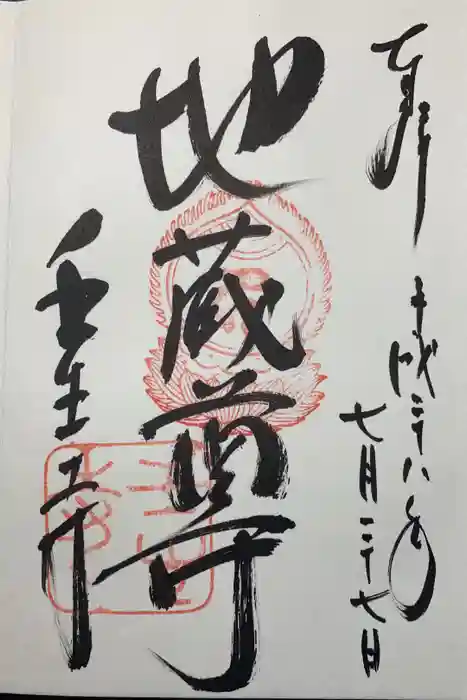 奉拝
平成二十八年
七月二十七日
地蔵尊
壬生寺